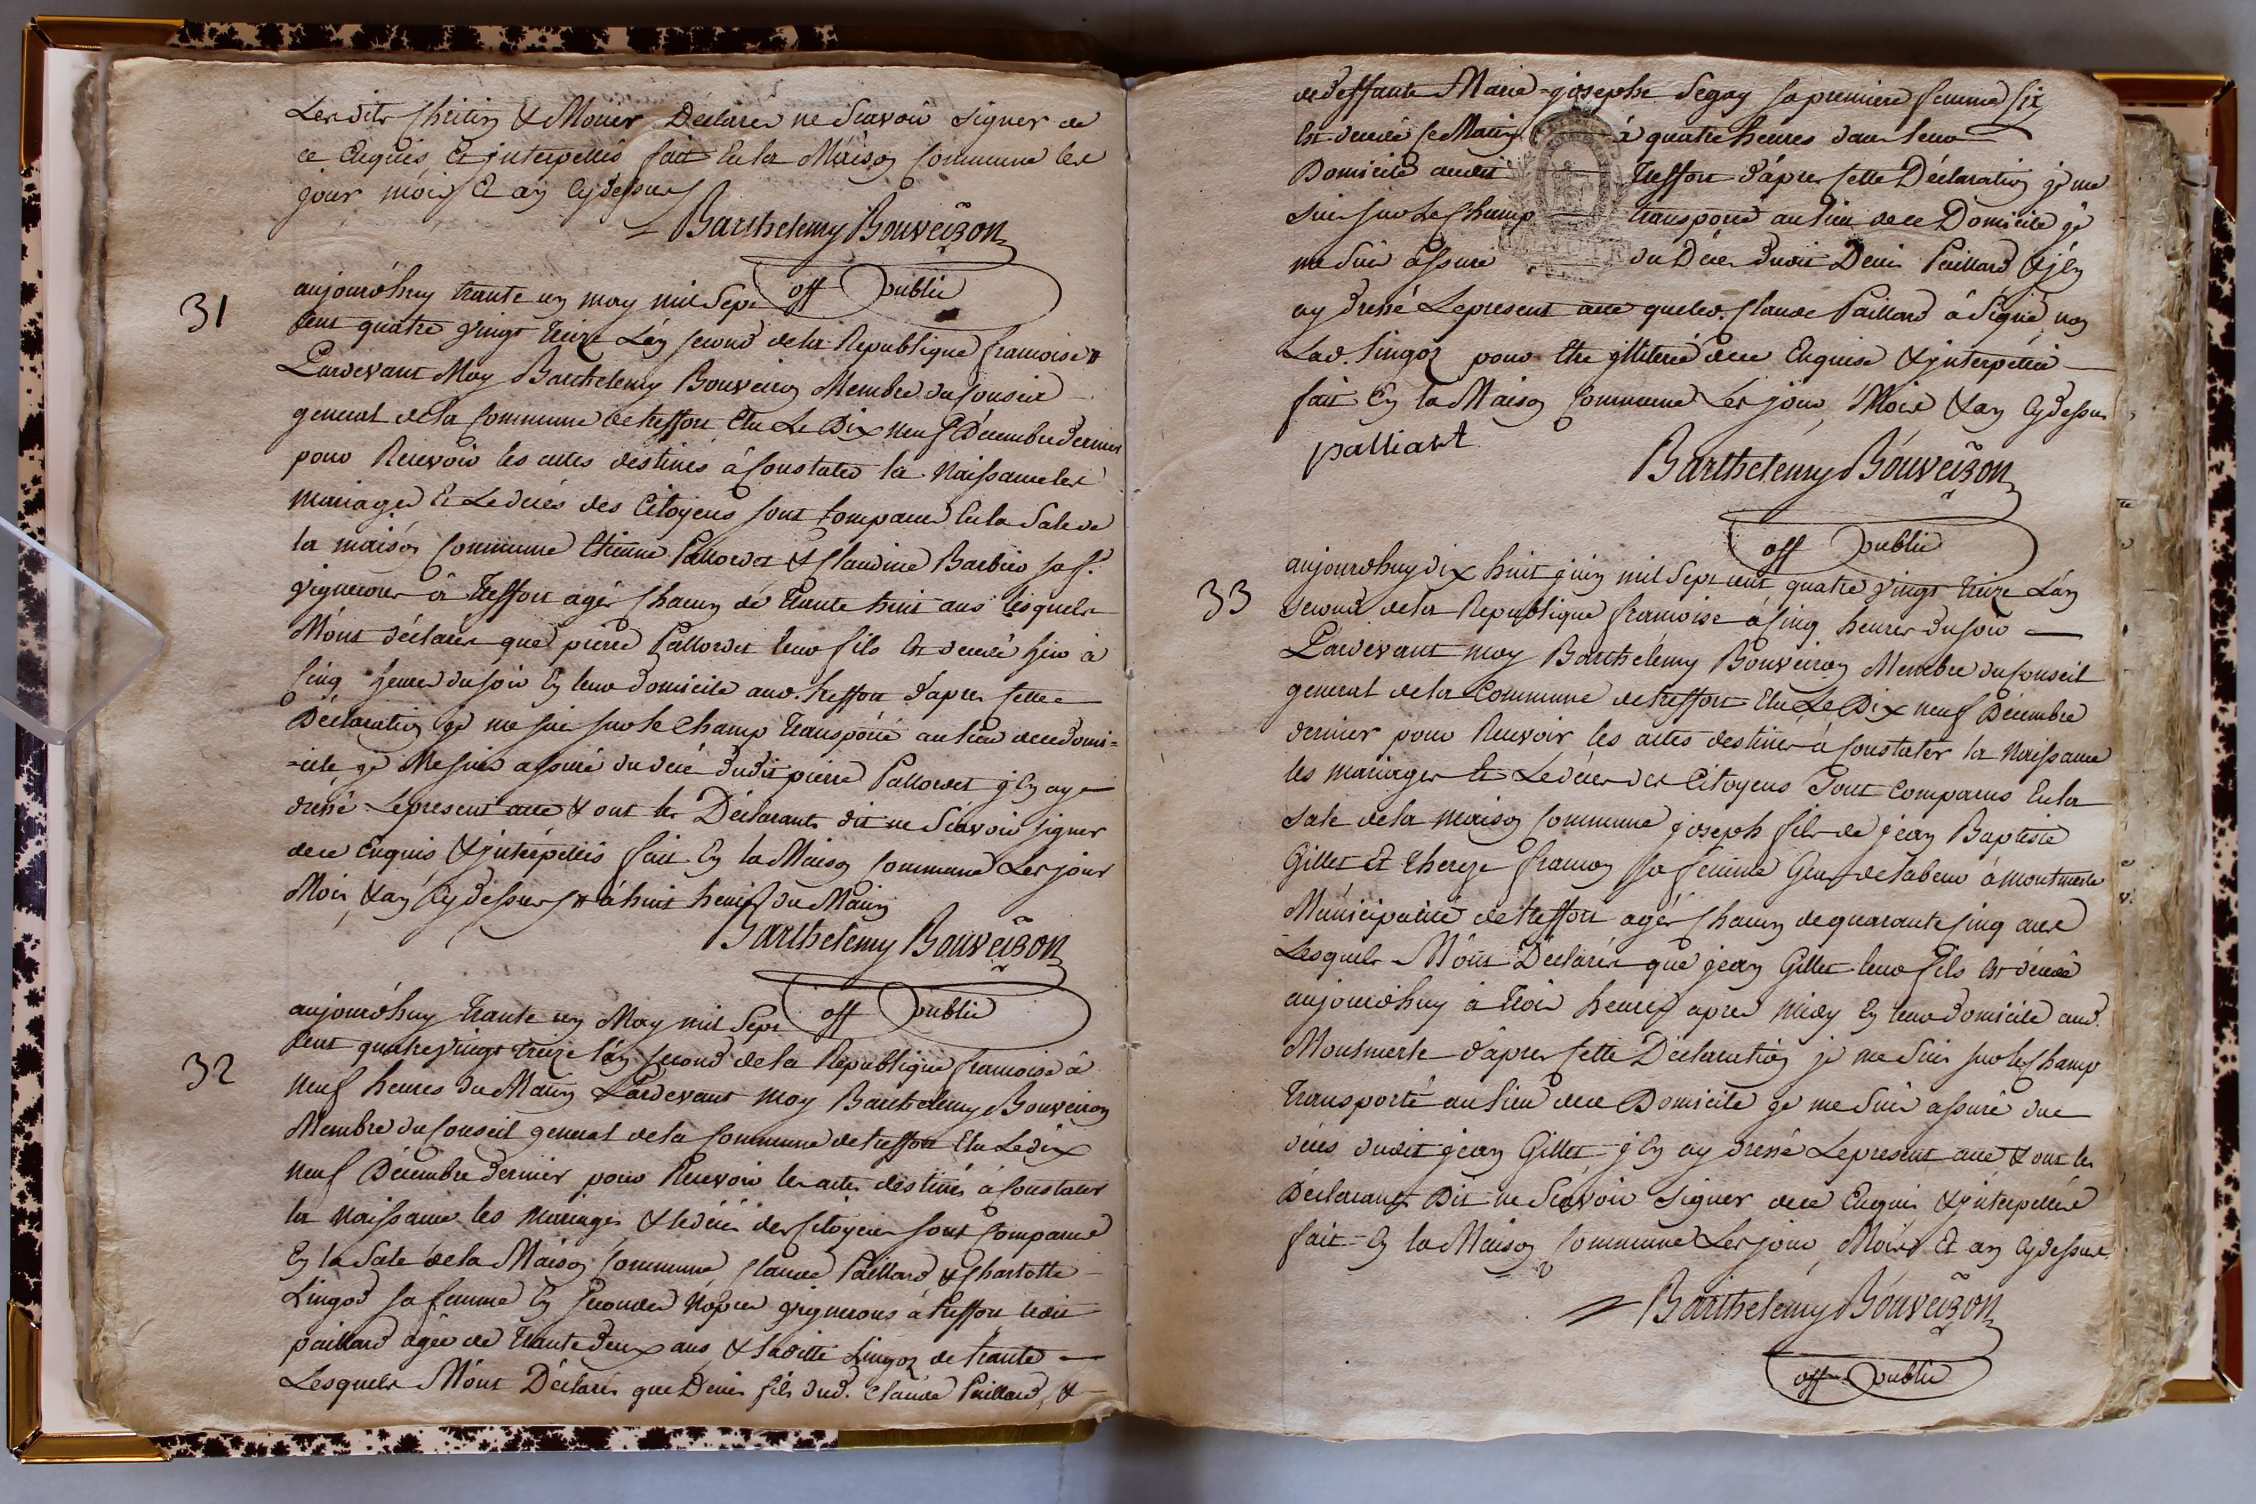 Lesdits Chritin & Moner Déclarés ne Scavoir signer de
ce Enquis Et interpellés fait En la Maison Commune les
jour mois Et an Cydessus
Barthelemy Bouveiron
off public
31
aujourd'huy trante un may mil Sept
Cent quatre vingt treize L'an second de la Republique francoise
Pardevant Moy Barthelemy Bouveiron Membre du Conseil
general de la Commune de treffort Elu Le Dix neuf Décembre dernier
pour Recevoir les actes destinés à Constater la Naissance les
mariages Et Le decés des Citoyens sont Comparus En la Sale de
la maison Commune Etienne Pallordet & Claudine Barbier sa f.
vignerons à Treffort agés Chacun de Trante huit ans lesquels
M'ont déclarés que pierre Pallordet leur fils Est decedé hier à
Cinq heures du soir En leur domicile aud. treffort d'apres Cette
Déclaration je me suis sur le Champ Transporté au lieu de ce domi=
=cile je Me suis assuré du décé dudit pierre Pallordet j'En ay
dressé Le present acte & ont les Déclarants dit ne Scavoir signer
de ce Enquis & interpellés fait En la Maison Commune Les jour
Mois & an Cy dessus à huit heures du Matin
Barthelemy Bouveiron
off public
32
aujourd'huy trante un May mil Sept
Cent quatre vingt treize l'an second de la Republique francoise à
neuf heures du Matin Pardevant moy Barthelemy Bouveiron
Membre du Conseil general de la Commune de treffort Elu Le dix
neuf Décembre dernier pour Recevoir les actes destinés à Constater
la Naissance les Mariages & le décés des Citoyens sont Comparus
En la Sale de la Maison Commune Claude Paillard & Charlotte
Lingod sa femme En secondes Nopces vignerons à treffort ledit
paillard agée de Trante deux ans & laditte Lingoz de trante
Lesquels M'ont Déclarés que Denis fils dud. Claude Paillard, &
de deffunte Marie=josephe Segay sa premiere femme
Est decedé ce Matin à quatre heures dans leur
Domicile audit Treffort d'apres Cette Déclaration je me
suis sur Le Champ transporté au lieu de ce Domicile je
me Suis assuré du Décés dudit Denis Paillard & j'En
ay dressé Le present acte que led. Claude Paillard à Signé non
Lad. Lingoz pour Etre illiteré de ce Enquise & interpellée
fait En la Maison Commune Les jour, Mois & an Cydessus
palliart
Barthelemy Bouveiron
off public
33
aujourdhuy dix huit juin mil Sept cent quatre vingt treize L'an
second de la Republique francoise à Cinq heures du soir
Pardevant moy Barthélemy Bouveiron Membre du Conseil
general de la Commune de treffort Elu Le Dix neuf Décembre
dernier pour Recevoir les actes destinés à Constater la Naissance
les mariages & Le décés des Citoyens Sont Comparus En la
Sale de la maison Commune joseph fils de jean Baptiste
Gillet Et Thereze francon sa femme Gens de labeur à montmerle
Municipalité de treffort agés Chacun de quarante Cinq ans
Lesquels M'ont Déclarés que jean Gillet leur fils Est décédé
aujourd'huy à trois heures apres midy En leur domicile aud.
Montmerle d'apres Cette Déclaration je me suis sur le Champ
Transporté au lieu de ce Domicile je me suis assuré du
décés dudit jean Gillet j'En ay dressé Le present acte & ont les
Déclarants Dit ne Scavoir signer de ce Enquis & interpellés
fait En la Maison Commune Les jour, Mois Et an Cydessus
Barthelemy Bouveiron
off public